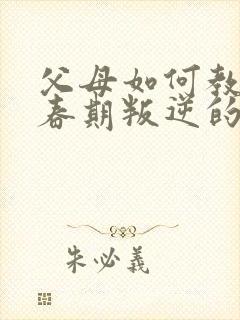 父母如何教
春期叛逆的
朱必義